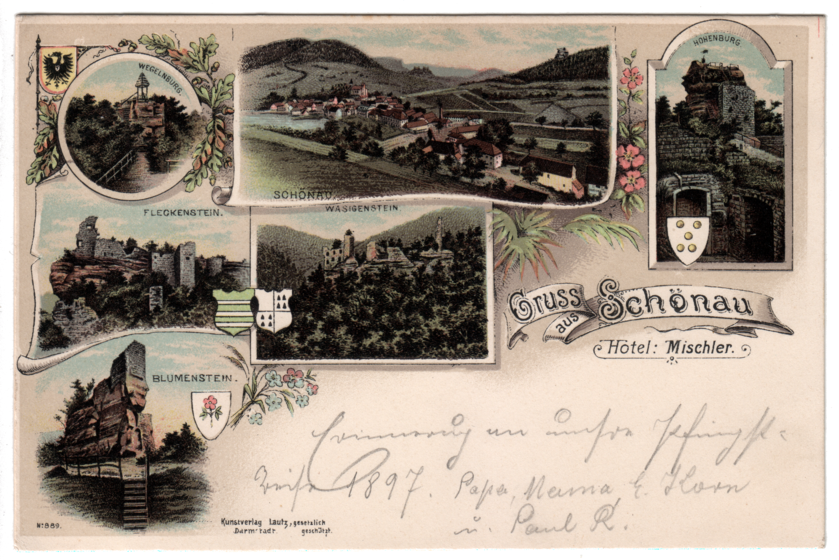 WEGELNBURG.
HOHENBURG
SCHÖNAU.
FLECKENSTEIN.
WASIGENSTEIN.
Gruss
aus
Schönau
Hôtel: Mischler.
BLUMENSTEIN.
Erinnerung an unsre Pfingst-
Reise 1897. Papa, Mama, E. Korn
u. Paul R.
No 889.
Kunstverlag Lautz, gesetzlich
Darmstadt geschützt.